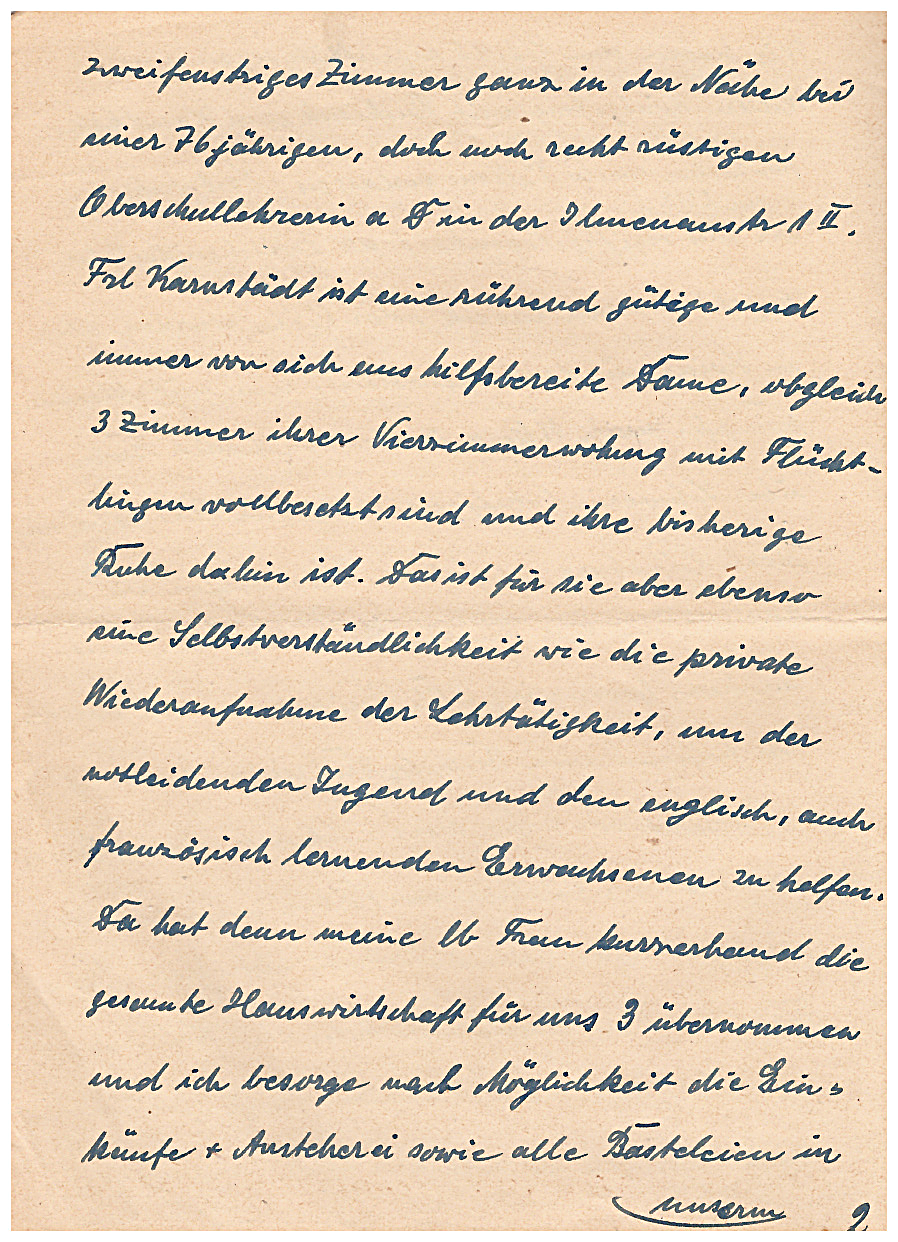 zweifenstriges Zimmer ganz in der Nähe bei
einer 76jährigen, doch noch recht rüstigen
Oberschullehrerin a D in der Ilmenaustr 1 II.
Frl Karnstädt ist eine rührend gütige und
immer von sich aus hilfsbereite Dame, obgleich
3 Zimmer ihrer Vierzimmerwohung mit Flücht-
lingen vollbesetzt sind und ihre bisherige
Ruhe dahin ist. Das ist für sie aber ebenso
eine Selbstverständlichkeit wie die private
Wiederaufnahme der Lehrtätigkeit, um der
notleidenden Jugend und den englisch, auch
französisch lernenden Erwachsenen zu helfen.
Da hat denn meine lb Frau kurzerhand die
gesamte Hauswirtschaft für uns 3 übernommen
und ich besorge nach Möglichkeit die Ein-
käufe + Ansteherei sowie alle Basteleien in
unserm 2